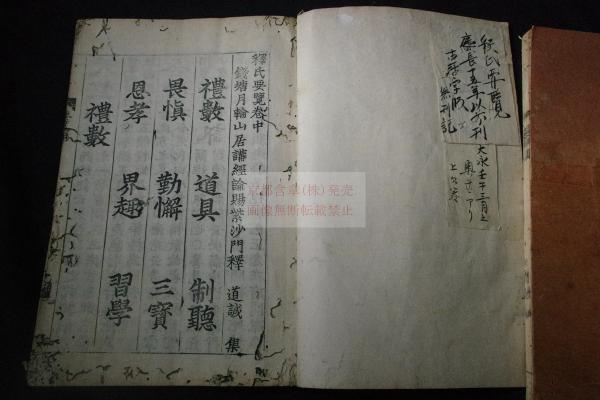 釋氏要覽
慶長十五年以前刊
古活字版
無刊記
大永壬午三月上
奥書アリ
釋氏要覽卷中
錢塘月輪山居講經論賜紫沙門釋 道誠 集
禮數 道具 制聽
畏愼 勤懈 三寶
恩孝 界趣 習學
禮數
京都含章(株)発売
画像無断転載禁止